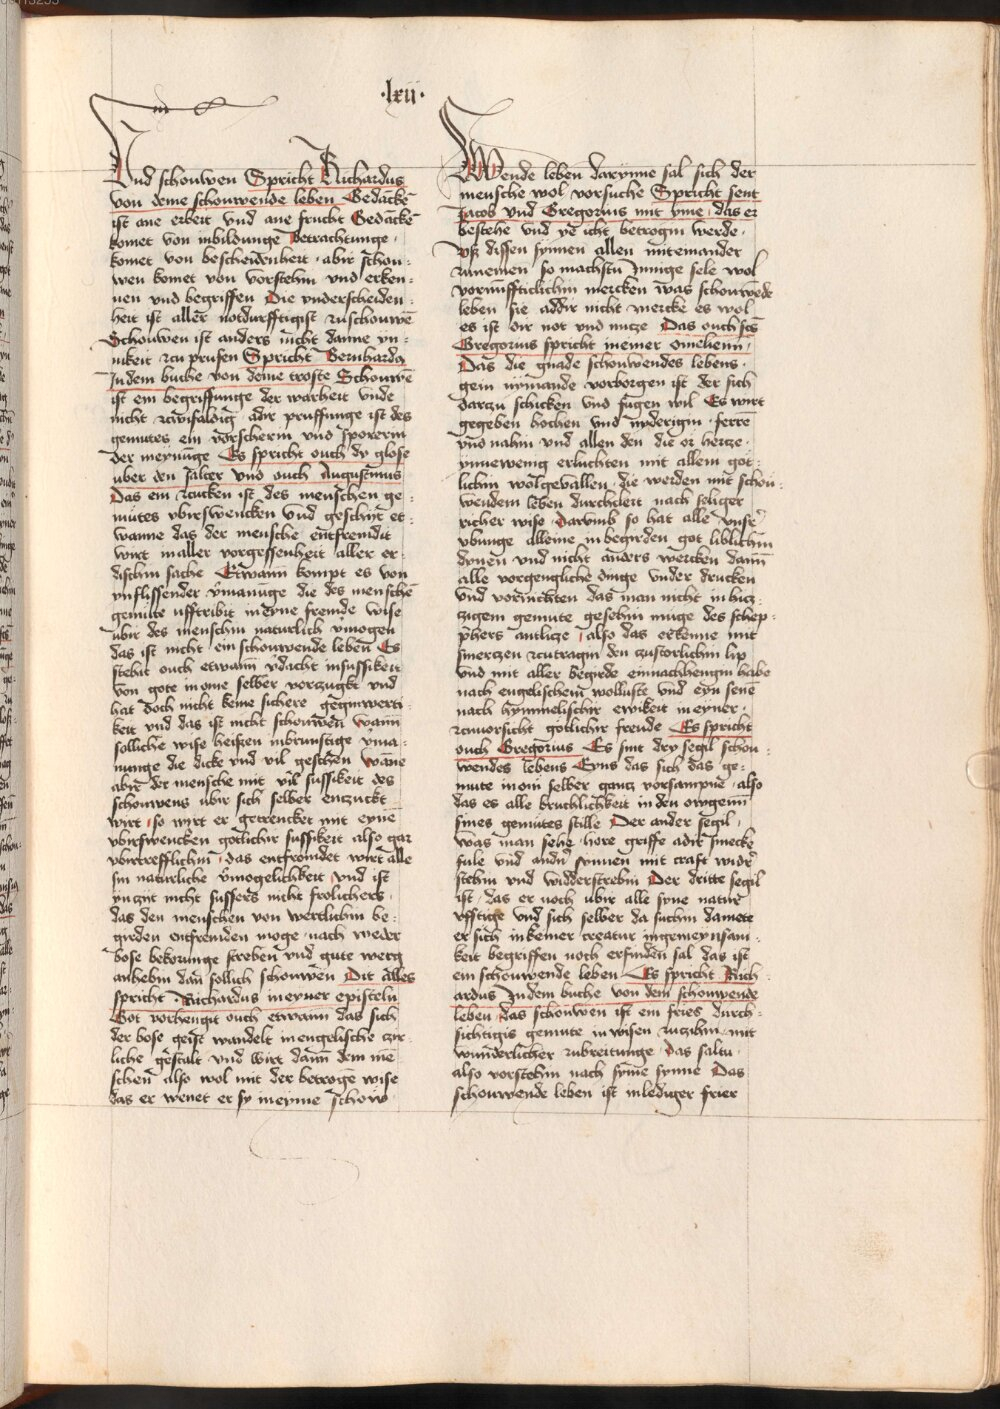 ·lxii·
Vnd schouwen Spricht Richardus
von deme schouwende leben Gedāckē
ist ane erbeit vnd ane frucht Gedāckē
komet von inbildunge Betrachtunge ·
komet von bescheidenheit · abir schou-
wen komet von vorstehin vnd erken-
nen vnd begriffen Die vnderscheiden-
heit ist aller notdurfftigist zuschouwē
Schouwen ist anders nicht danne yn-
nikeit zcu prufen Spricht Bernhardꝯ
In dem buche von deme troste Schouwē
ist ein begriffunge der warheit vnde
nicht zcwifaldig adir pruffunge ist des
gemutes ein vorscherin vnd sporerin
der meynūge Es spricht ouch dy glose
uber den salter vnd ouch Augustinus
Das ein zcucken ist des menschen ge-
mutes vbirswencken vnd geschyt et-
wanne das der mensche entfremdit
wirt in aller vorgessenheit aller er-
dischin sache Etwann kompt es von
ynflissender ynnūge die des menschē
gemute vfftribit in eyne fremde wise
ubir des menschin naturlich vmogen
das ist nicht ein schouwende leben Es
stehit ouch etwann ydacht in sussikeit
von gote in ome selber vorzugkt vnd
hat doch nicht keine sichere geginwerti-
keit vnd das ist nicht schouwen wann
solliche wise heissen inbrunstige yma-
nunge die dicke vnd vil geschen Wāne
abir der mensche mit vil sussikeit des
schouwens ubir sich selber enzuckt
wirt · so wirt er getrencket mit eyne
vbirswencken gotlichir sussikeit also gar
vbirtrefflichin · das entfromdet wirt alle
sin naturliche vmogelichkeit vnd ist
yn gyt nicht sussers nicht frolichers ·
das den menschen von wertlichin be-
girden entfremden moge · nach weder
bose bekorunge streben vnd gute werg
anhebin dan sollich schouwen Dit alles
spricht · Richardus in eyner episteln
Got vorhengit ouch etwann das sich
der bose geist wandelt in engelische zir-
liche gestalt vnd wirt dann dem me-
schen also wol mit der betrogē wise
das er wenet er sy in eyme schow-
Wende leben darynne sal sich der
mensche wol vorsuche Spricht sent
Jacob vnd Gregorius mit yme · das er
bestehe vnd ye icht betrogin werde ·
Vß dissen synnen allen miteinander
zunemen so machstu Innige sele wol
vornufftiklichin mercken was schouwēde
leben sie addir nicht mercke es wol
es ist dir not vnd nutze Das ouch scs
Gregorius spricht in einer Omelienn ·
Das die gnade schouwendes lebens ·
gern nymande vorborgen ist der sich
darczu schicken vnd fugen wil Es wirt
gegeben hochen vnd nyderigin · ferrē
vnd nahin vnd allen den die or hertze ·
ynnewenig erluchten mit allem got-
lichin wolgevallen · die werden mit schou-
wendem leben durchclert nach seliger
richer wise · Darumb so hat alle vnser
vbunge alleine in begirden got liblichin
dynen vnd nicht anders wercken dann
alle vorgengliche dinge vnder drucken
vnd vornichten das man nicht in hitz-
zigem gemute gesehin muge des schep-
phers antlitze · also das erkenne mit
smertzen zcutragin den zustorlichin lip
vnd mit aller begirde einnachhengin habe
nach engelischem wolluste vnd eyn senē
nach hymmelischir ewikeit in eyner ·
zcuuorsicht gotlichir freude Es spricht
ouch Gregorius Es sint dry segil schou-
wendes lebens Eyns das sich das ge-
mute in om selber gantz vorsampne · also
das es alle bruchlichkeit in den orygenn
sines gemutes stille Der ander segil ·
was man sehe hore griffe adir smecke
fule vnd andir synnen mit craft widir
stehin vnd widderstrebin Der dritte segil
ist · das er noch ubir alle syne natur
vffstige vnd sich selber da suchin damete
er sich in keiner creatur in gemeynsam-
keit begriffen noch erfunden sal das ist
ein schouwende leben Es spricht Rich-
ardus In dem buche von dem schouwende
leben · das schouwen ist ein fries durch-
sichtigis gemute in wisen zuzihin · mit
wunderlicher zubreitunge · Das saltu ·
also vorstehin nach syme synne Das
schouwende leben ist in lediger frier